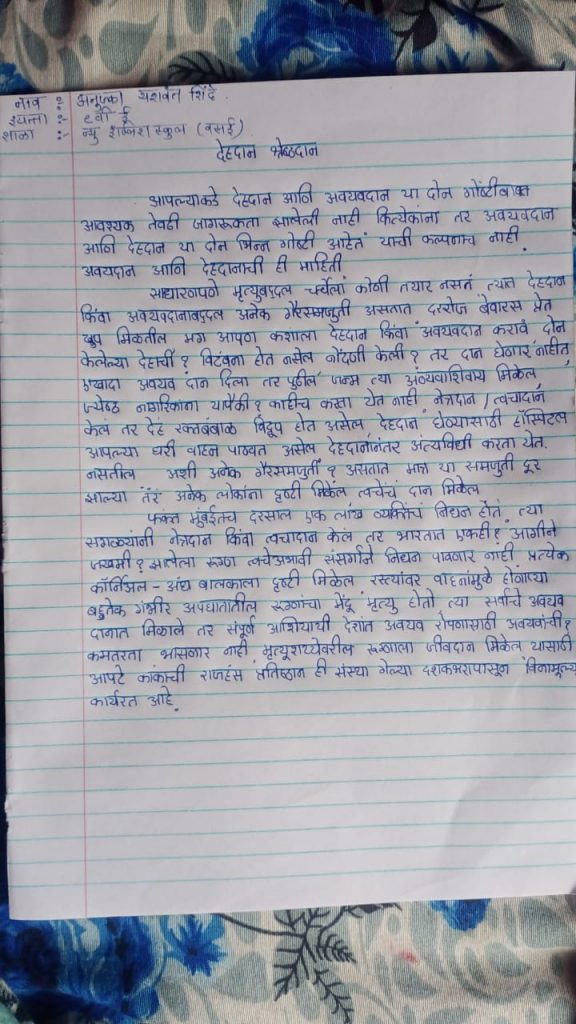 नाव :- अनुष्का यशवंत शिंदे.
इयत्ता :- ८वी ई
शाळा :- न्यु इंग्लिश स्कुल (वसई)
देहदान श्रेष्ठदान
आपल्याकडे देहदान आणि अवयवदान या दोन गोष्टींबाबत
आवश्यक तेवढी जागरूकता झालेली नाही कित्येकांना तर अवयवदान
आणि देहदान या दोन भिन्न गोष्टी आहेत याची कल्पनाच नाही.
अवयदान आणि देहदानाची ही माहिती
साधारणपणे मृत्युबद्दल चर्चेला कोणी तयार नसतं त्यात देहदान
किंवा अवयवदानाबद्दल अनेक गैरसमजुती असतात दररोज बेवारस प्रेत
खुप मिळतील मग आपण कशाला देहदान किंवा अवयवदान करावं दोन
केलेल्या देहाची ? विटंबना होत नसेल नोंदणी केली ? तर दान घेणार नाहीत,
एखादा अवयव दान दिला तर पुढील जन्म त्या अवयवाशिवाय मिळेल,
ज्येष्ठ नागरिकांना यापैकी ? काहीच करता येत नाही नेत्रदान / त्वचादान
केलं तर देह रक्तबंबाळ विद्रूप होत असेल देहदान घेण्यासाठी हॉस्पिटल
आपल्या घरी वाहन पाठवत असेल देहदानानंतर अंत्यविधी करता येत.
नसतील अशी अनेक गैरसमजुती ? असतात मात्र या समजुती दूर
झाल्या तर अनेक लोकांना दृष्टी मिळेल त्वचेचं दान मिळेल
फक्त मुंबईतच दरसाल एक लाख व्यक्तिंचं निधन होतं त्या
सगळ्यांनी नेत्रदान किंवा त्वचादान केलं तर भारतात एकही ? आगीने
जखमी ? झालेला रूग्ण त्वचेअभावी संसर्गाने निधन पावणार नाही प्रत्येक
कॉर्निअल - अंध बालकाला दृष्टी मिळेल रस्त्यांवर वाहनांमुळे होणाऱ्या
बहुतेक गंभीर अपघातातील रूग्णांचा मेंदू मृत्यु होतो त्या सर्वांचे अवयव
दानात मिळाले तर संपूर्ण आशियायी देशांत अवयव रोपणासाठी अवयवांची ?
कमतरता भासणार नाही, मृत्यूशय्येवरील रूग्णाला जीवदान मिळेल यासाठी
आपटे काकांची राजहंस प्रतिष्ठान ही संस्था गेल्या दशकभरापासून विनामूल्य
कार्यरत आहे.